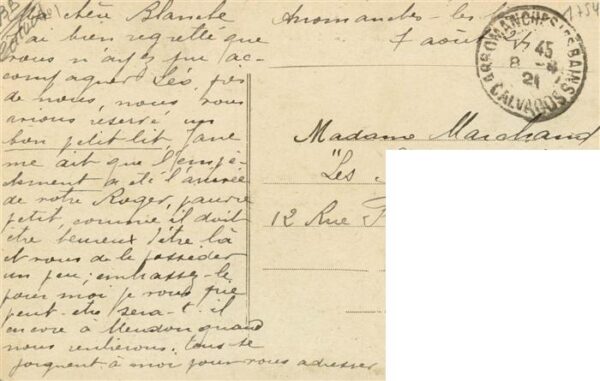 Ma chère Blanche
J'ai bien regretté que
vous n'ayez pu ac-
compagner Léo, près
de nous, nous vous
avions réservé un
bon petit lit. Jane
me dit que l'empê-
chement a été l'arrivée
de votre Roger, pauvre
petit, comme il doit
être heureux d'être là
et vous de le posséder
un peu; embrassez-le
pour moi je vous prie
peut-être sera-t-il
encore à Meudon quand
nous rentrerons. tous se
joignent à moi pour vous adresser
Arromanches-les
7 août
ARROMANCHES-LES-BAINS
45
8 -8
21
CALVADOS
1754
Madame Marchand
"Les
12 Rue